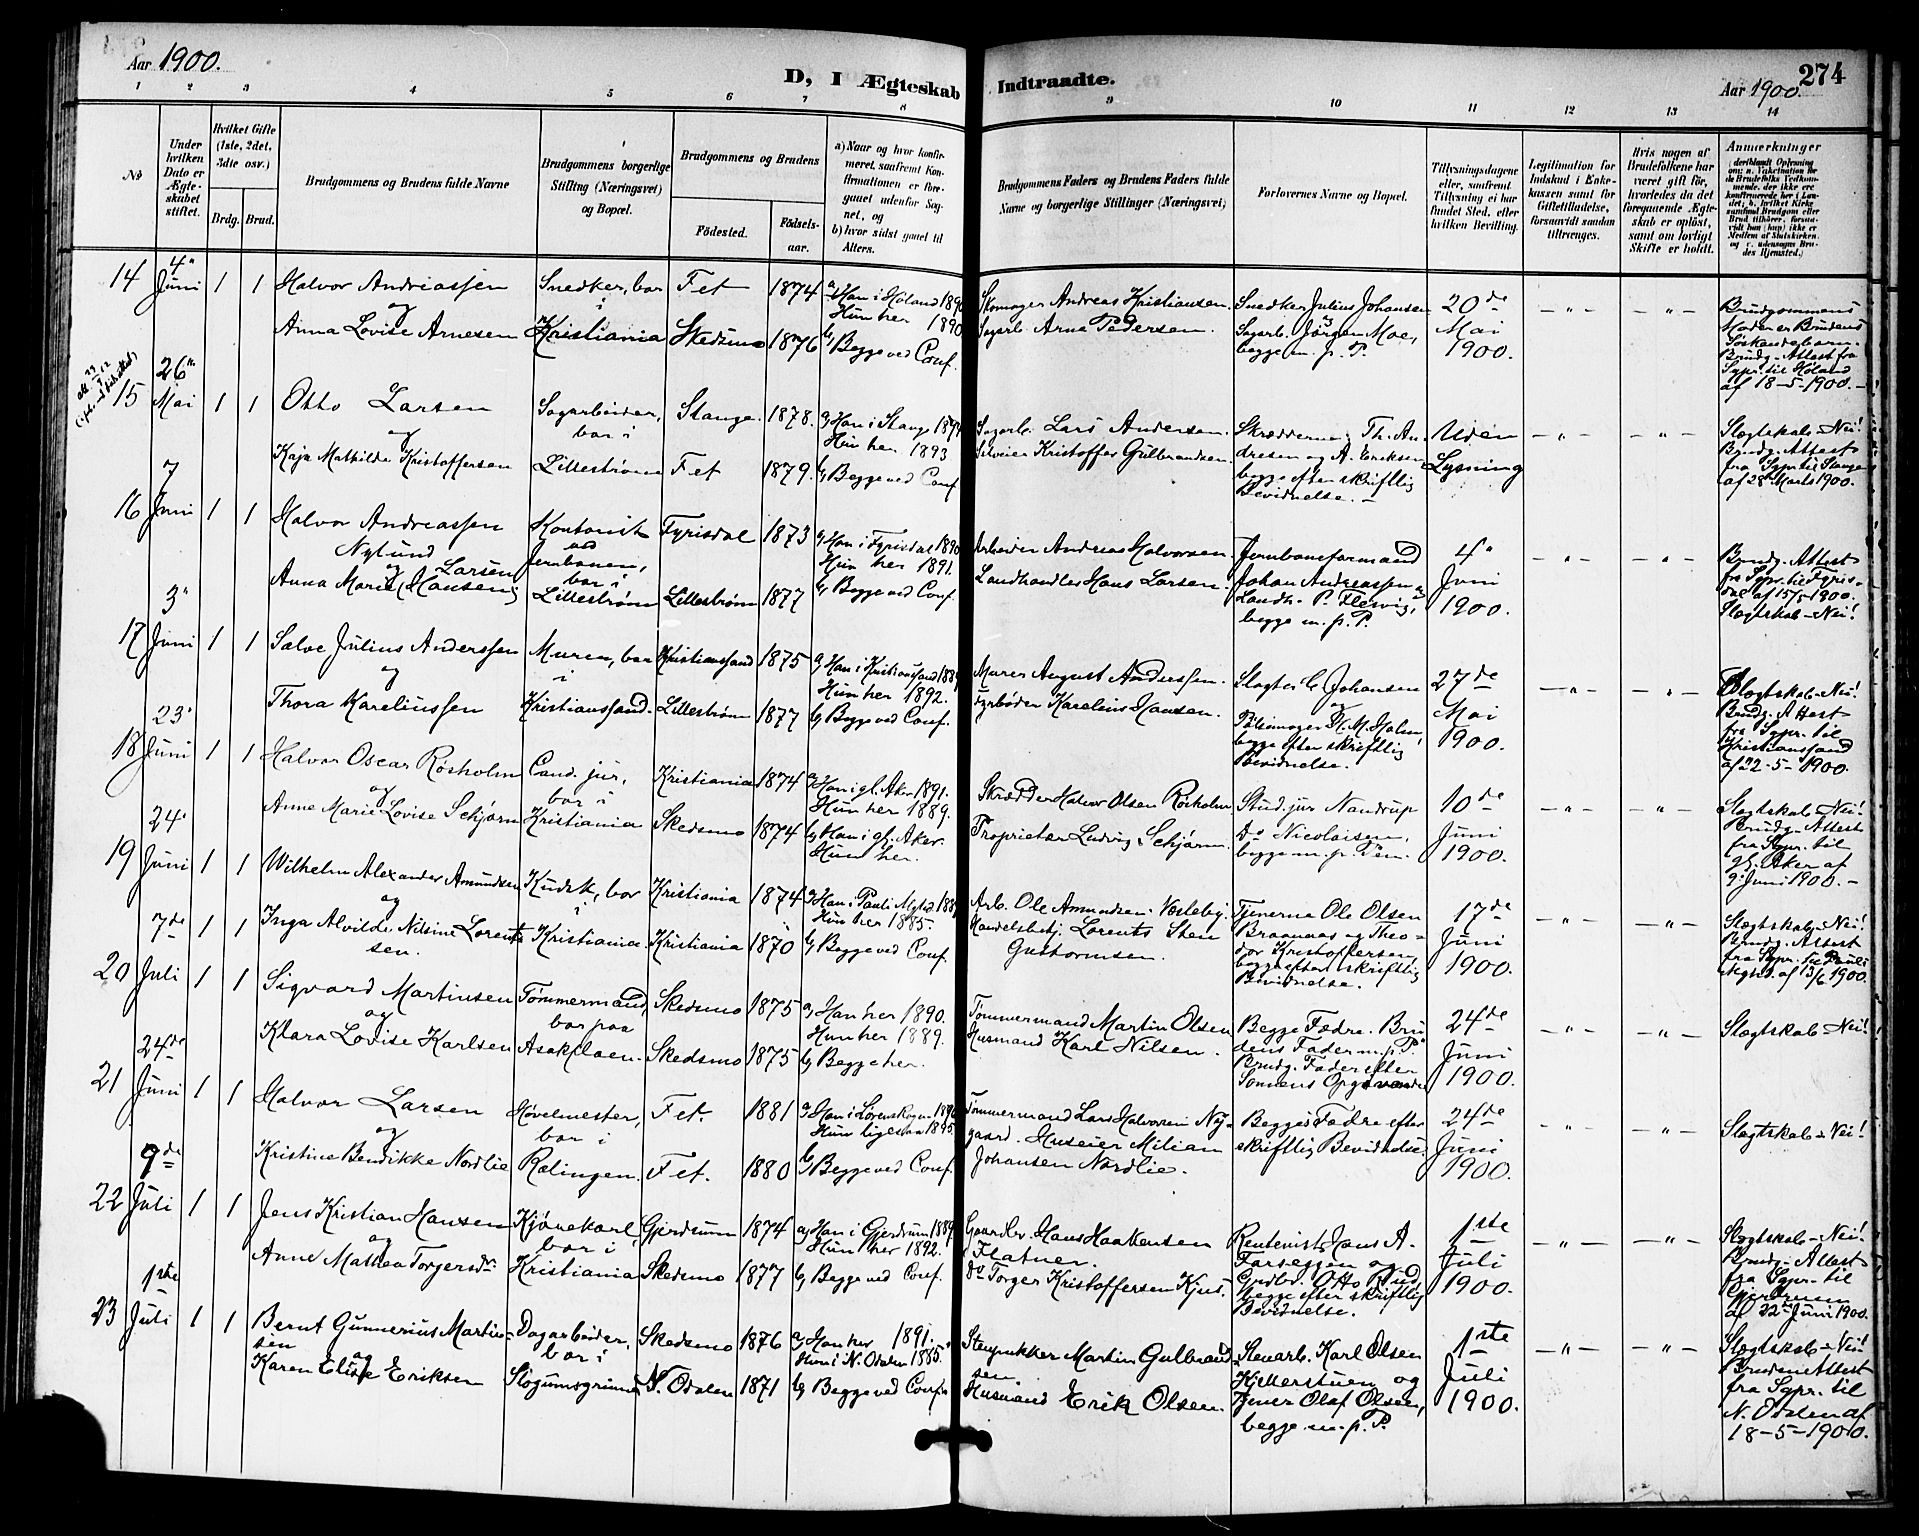 Aar 1900.
D, I Ægteskab Indtraadte.
Aar 1900.
274
1 2 3 4 5 6 7 8 9 10 11 12 13 14
No
Under hvilken Dato er Ægteskabet stiftet.
Hvilket Gifte (1ste, 2det, 3die osv.)
Brdg. Brud.
Brudgommens og Brudens fulde Navne
Brudgommens borgerlige Stilling (Næringsvei) og Bopæl.
Brudgommens og Brudens
Fødested. Fødsels-aar.
a) Naar og hvor konfirmeret, saafremt Konfirmationen er foregaaet udenfor Sognet, og
b) hvor sidst gaaet til Alters.
Brudgommens Faders og Brudens Faders fulde Navne og borgerlige Stillinger (Næringsvei)
Forlovernes Navne og Bopæl.
Tillysningsdagene eller, saafremt Tillysning ei har fundet Sted, efter hvilken Bevilling.
Legitimation for Indskud i Enkekassen samt for Giftetilladelse, forsaavidt saadan tiltrænges.
Hvis nogen af Brudefolkene har været gift før, hvorledes da det foregaaende Ægteskab er opløst, samt om lovligt Skifte er holdt.
Anmærkninger
14 4" Juni 1 1 Halvor Andreassen og Snedker, bor i Fet 1874 a) Han i Høland Skomager Andreas Kristiansen. Snedker Julius Johansen 20de Mai 1900. – " – – " –
Anna Lovise Arnesen Kristiania Skedsmo 1876 Hun her 1890 b) Begge ved Conf. Sagarb. Arne Pedersen. Sagarb. Jørgen Moe, begge m. p. P.
Brudgommens Moder er Brudens Søskendebarn. Brudg. Attest fra Spr. til Høland af 18-5-1900.
15 26de Mai 1 1 Otto Larsen og Sagarbeider, bor i Stange. 1878. a) Han i Stange Hun her 1893 Sagarb. Lars Andersen. Skrædderne Th. Andresen og A. Eriksen begge efter skriftlig Bevidnelse. Uden Lysning – " – – " –
Kaja Mathilde Kristoffersen Lillestrøm Fet 1879. b) Begge ved Conf Kristoffer Gulbrandsen.
Slægtskab – Nei! Brudg. Attest fra Spr. til Stange af 28 Marts 1900.
16 7 Juni 1 1 Halvor Andreassen Nylund og Kontorist ved Jernbanen, bor i Fyrisdal 1873 a) Han i Fyrisdal 1890 Hun her 1891. Arbeider Andreas Halvorsen. Jernbaneformand Johan Andreassen og Landh. P. Flesvig, begge m. p. P. 4" Juni 1900 – " – – " –
Anna Marie Larsen (Hansen) Lillestrøm Lillestrøm 1877 b) Begge ved Conf. Landhandler Hans Larsen.
Brudg. Attest fra Spr. til Fyrisdal af 15/5-1900. Slægtskab – Nei!
17 3" Juni 1 1 Salve Julius Anderssen og Murer, bor i Kristianssand 1875 a) Han i Kristianssand Hun her 1892. Murer August Anderssen. Slagter C. Johansen og 27de Mai 1900. – " – – " –
Thora Kareliussen Kristianssand. Lillestrøm 1877 b) Begge ved Conf. Fyrbøder Karelius Hansen. M. Holm, begge efter skriftlig Bevidnelse.
Slægtskab – Nei! Brudg. Attest fra Spr. til Kristianssand af 22-5-1900.
18 23" Juni 1 1 Halvor Oscar Røsholm og Cand. jur., bor i Kristiania 1874 a) Han i gl. Aker 1891. Hun her 1889. Skrædder Halvor Olsen Røsholm. Stud. jur Nandrup 10de Juni 1900. – " – – " –
Anne Marie Lovise Schjørn Kristiania Skedsmo 1874 b) Han i gl. Aker. Hun her. Proprietær Ludvig Schjørn. Do Nicolaisen, begge m. p. Pen.
Slægtskab – Nei! Brudg. Attest fra Spr. til gl. Aker af 9. Juni 1900. –
19 24" Juni 1 1 Wilhelm Alexander Amundsen og Kudsk, bor i Kristiania 1874 a) Han i Pauli Mghd Hun her 1885. Arb. Ole Amundsen Tjenerne Ole Olsen Braanaas og Theodor Kristoffersen, begge efter skriftlig Bevidnelse. 17de Juni 1900. – " – – " –
Inga Alvilde Nilsine Lorentsen. Kristiania. Kristiania 1870 b) Begge ved Conf. Handelsbetj. Lorents Sten Gustormsen.
Slægtskab – Nei! Brudg. Attest fra Spr. til Pauli Mghd. af 13/6 1900.
20 7de Juli 1 1 Sigvard Martinsen og Tømmermand, bor paa Skedsmo 1875 a) Han her 1890. Hun her 1889. Tømmermand Martin Olsen Begge Fædre. Brudens Fader m. p. P. Brudg. Fader efter Sønnens Opgivende 24de Juni 1900. – " – – " –
Klara Lovise Karlsen Asakplaen. Skedsmo 1875 b) Begge her. Husmand Karl Nilsen.
Slægtskab – Nei!
21 24de Juni 1 1 Halvor Larsen og Høvelmester, bor i Fet. 1881 a) Han i Lørenskogen Hun ligesaa 1895. Tømmermand Lars Halvorsen Nygaard. Begges Fædre efter skriftlig Bevidnelse. 24de Juni 1900. – " – – " –
Kristine Bendikke Nordlie Rælingen. Fet. 1880 b) Begge ved Conf. Huseier Milian Johansen Nordlie.
Slægtskab – Nei!
22 9de Juli 1 1 Jens Kristian Hansen og Kjørekarl, bor i Gjerdrum 1874 a) Han i Gjerdrum 1889 Hun her 1892. Gaardbr. Hans Haakensen Flatner. Rentenist Hans A. Farseggen og Gaardbr. Otto Rud, begge efter skriftlig Bevidnelse. 1ste Juli 1900. – " – – " –
Anne Mathea Torgersdr. Kristiania Skedsmo 1877 b) Begge ved Conf. Do Torger Kristoffersen Kjus.
Slægtskab – Nei! Brudg. Attest fra Spr. til Gjerdrum af 22de Juni 1900.
23 1ste Juli 1 1 Bernt Gunnerius Martinsen og Dagarbeider, bor i Skedsmo 1876 a) Han her 1891. Hun i N. Odalen 1885. Martin Gulbrandsen. Stenarb. Karl Olsen Kjellerstuen og Tjener Olaf Olsen, begge m. p. P. 1ste Juli 1900. – " – – " –
Karen Elise Eriksen N. Odalen 1871 b) Begge ved Conf. Husmand Erik Olsen.
Slægtskab – Nei! Brudens Attest fra Spr. til N. Odalen af 18-5-1900.